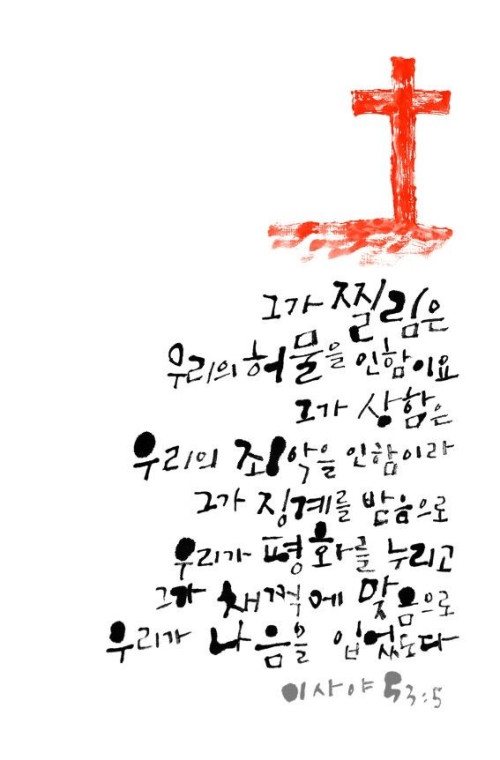 그가 찔림은
우리의 허물을 인함이요
그가 상함은
우리의 죄악을 인함이라
그가 징계를 받음으로
우리가 평화를 누리고
그가 채찍에 맞음으로
우리가 나음을 입었도다
이사야 53:5